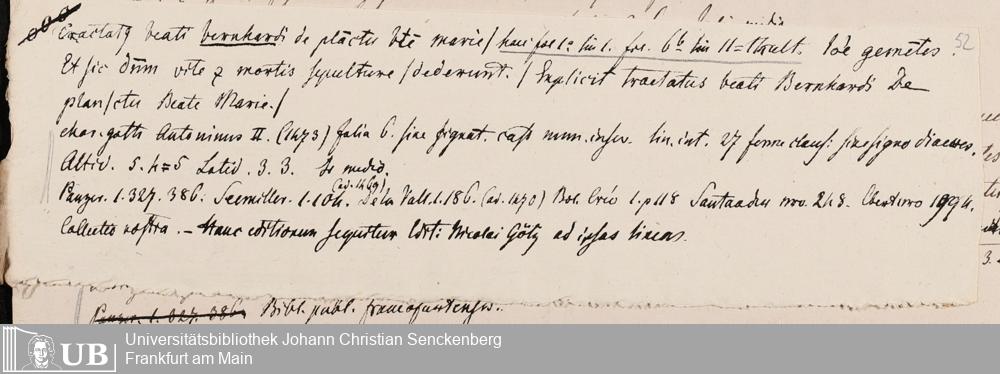 52
Tractatꝫ beati bernhardi de plāctu bte marie / haec fol. 1a lin 1. fol. 6b lin 11 = thult. Ide gemētes.
Et sic dnm vite ⁊ mortis sepulture / dederunt. / Explicit tractatus beati Bernhardi De
planctu Beate Marie. /
char. goth. Antoninus II. (1473) folia 6. sine signat. cust. num. inser. lin. int. 27 sine signo
Altid. 5. 4=5 Latid. 3. 3.
Panzer. 1. 327. 386. Seemiller. 1. 104. (ad. 1469) De la Vall. 1. 186. (ad. 1470) Bol. 1. p 118 Santander nro. 248. Ebert nro
Collectio nostra. – Hanc editionem sequitur Nicolai Götz ad ipsas lineas.
Panzer. 1. 327. 386. Bibl. publ. francofurtensis.
3.
UB
Universitätsbibliothek Johann Christian Senckenberg
Frankfurt am Main